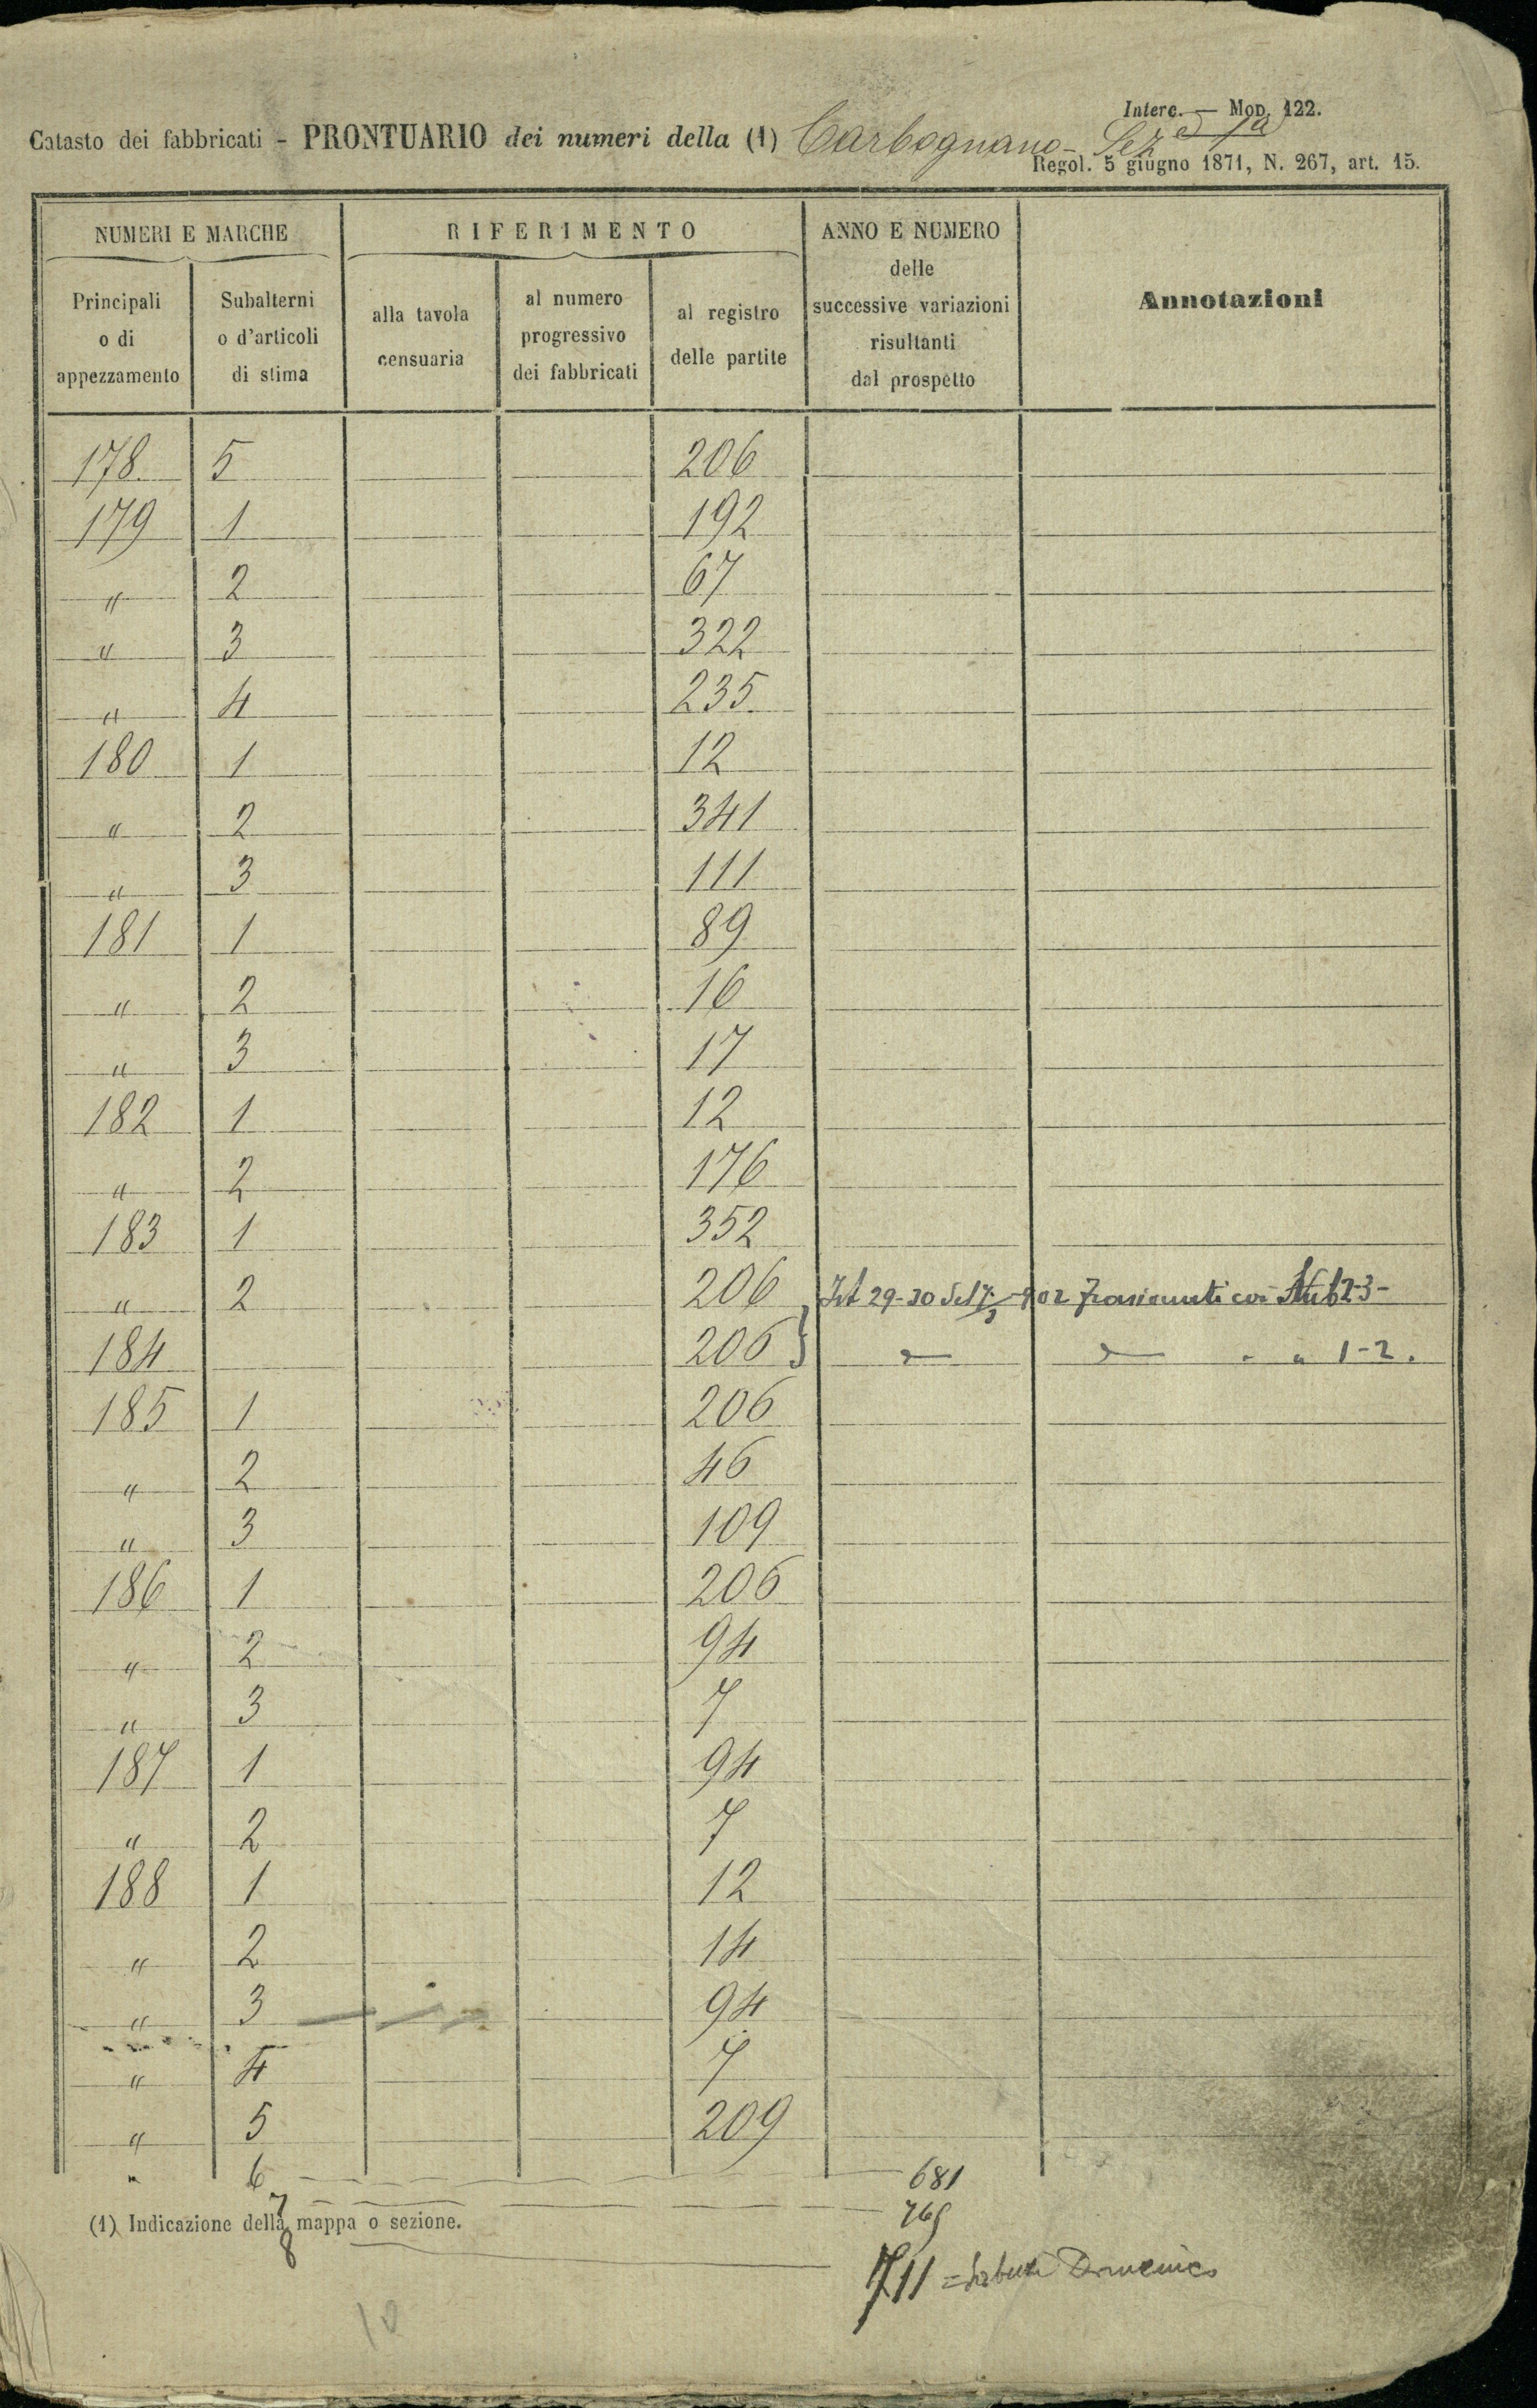 Interc. — Mod. 122.
Catasto dei fabbricati - PRONTUARIO dei numeri della (1) Carbognano - Sez.e 1a
Regol. 5 giugno 1871, N. 267, art. 15.
NUMERI E MARCHE RIFERIMENTO ANNO E NUMERO delle successive variazioni risultanti dal prospetto Annotazioni
Principali o di appezzamento Subalterni o d'articoli di stima alla tavola censuaria al numero progressivo dei fabbricati al registro delle partite
178 5 206
179 1 192
" 2 67
" 3 322
" 4 235
180 1 12
" 2 341
" 3 111
181 1 89
" 2 16
" 3 17
182 1 12
" 2 176
183 1 352
" 2 206 29-30 902 2-3-
184 206 } " " 1-2.
185 1 206
" 2 46
" 3 109
186 1 206
" 2 94
" 3 7
187 1 94
" 2 7
188 1 12
" 2 14
" 3 94
" 4 7
" 5 209
" 6 681
7 769
(1) Indicazione della mappa o sezione.
8 711 = Domenico
10